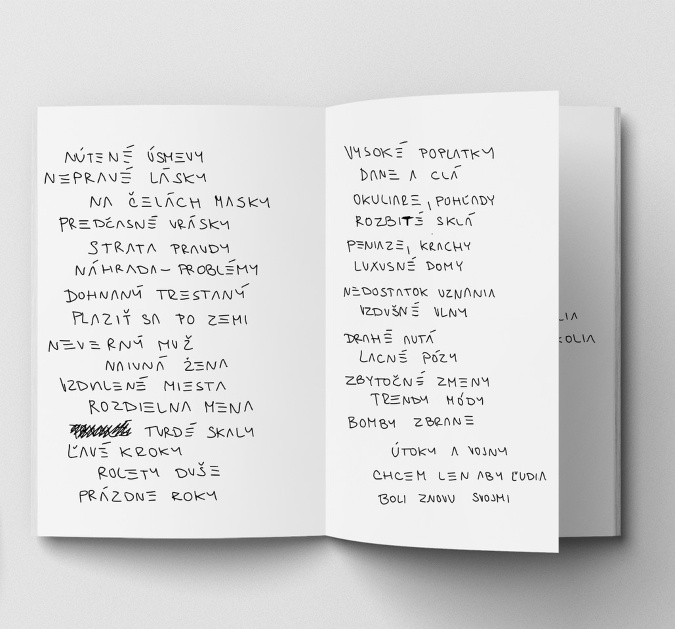 NÚTENÉ ÚSMEVY
NEPRAVÉ LÁSKY
NA ČELÁCH MASKY
PREDČASNÉ VRÁSKY
STRATA PRAVDY
NÁHRADA - PROBLÉMY
DOHNANÝ TRESTANÝ
PLAZIŤ SA PO ZEMI
NEVERNÝ MUŽ
NAIVNÁ ŽENA
VZDALENÉ MIESTA
ROZDIELNA MENA
TVRDÉ SKALY
ĽAVÉ KROKY
ROLETY DUŠE
PRÁZDNE ROKY
VYSOKÉ POPLATKY
DANE A CLÁ
OKULIARE, POHĽADY
ROZBITÉ SKLÁ
PENIAZE, KRACHY
LUXUSNÉ DOMY
NEDOSTATOK UZNANIA
VZDUŠNÉ VLNY
DRAHÉ AUTÁ
LACNÉ PÓZY
ZBYTOČNÉ ZMENY
TRENDY MÓDY
BOMBY ZBRANE
ÚTOKY A VOJNY
CHCEM LEN ABY ĽUDIA
BOLI ZNOVU SVOJMI
LIA
KOLIA